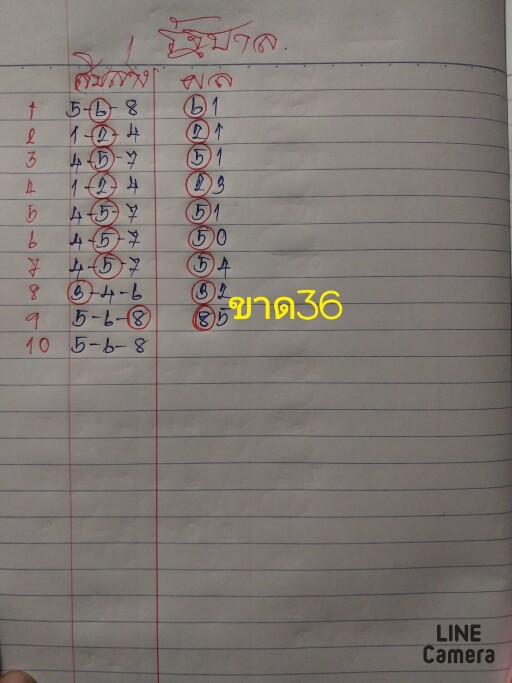 รัฐบาล.
สิบล่าง ผล
1 5-6-8 61
2 1-2-4 21
3 4-5-7 51
4 1-2-4 23
5 4-5-7 51
6 4-5-7 50
7 4-5-7 54
8 3-4-6 32
9 5-6-8 85
ขาด36
10 5-6-8
LINE
Camera